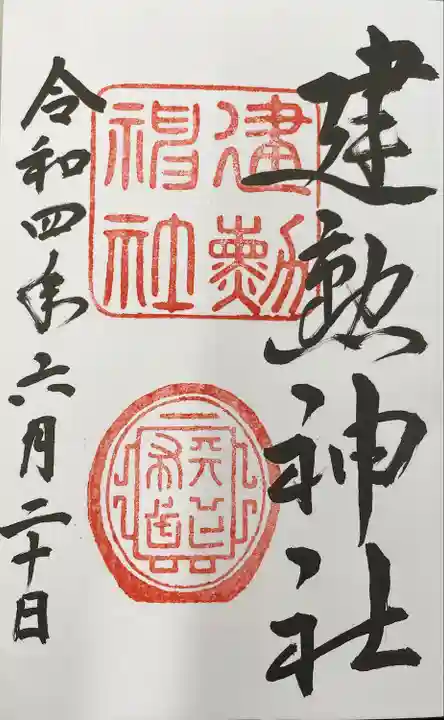 建勲神社
建勲
神社
天下布武
令和四年六月二十日